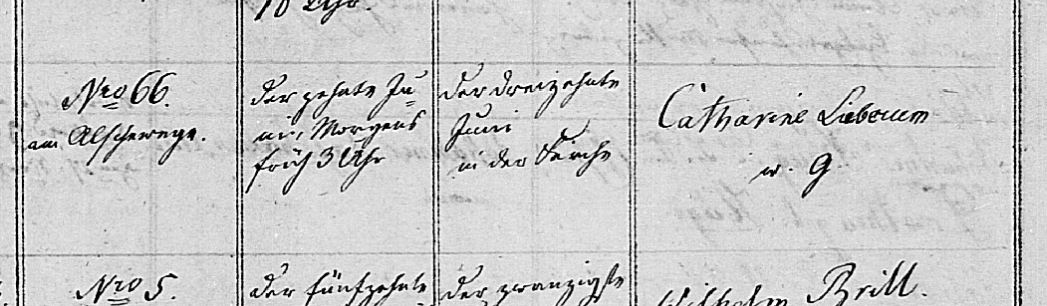 10 Uhr.
Nro 66.
am Alscherwege.
der zehnte Ju=
ni, Morgens
früh 3 Uhr
der dreizehnte
Juni
in der Kirche
Catharine Lieberum
w. g
Nro 5.
der fünfzehnte
der zwanzigste
Wilhelm Brill.